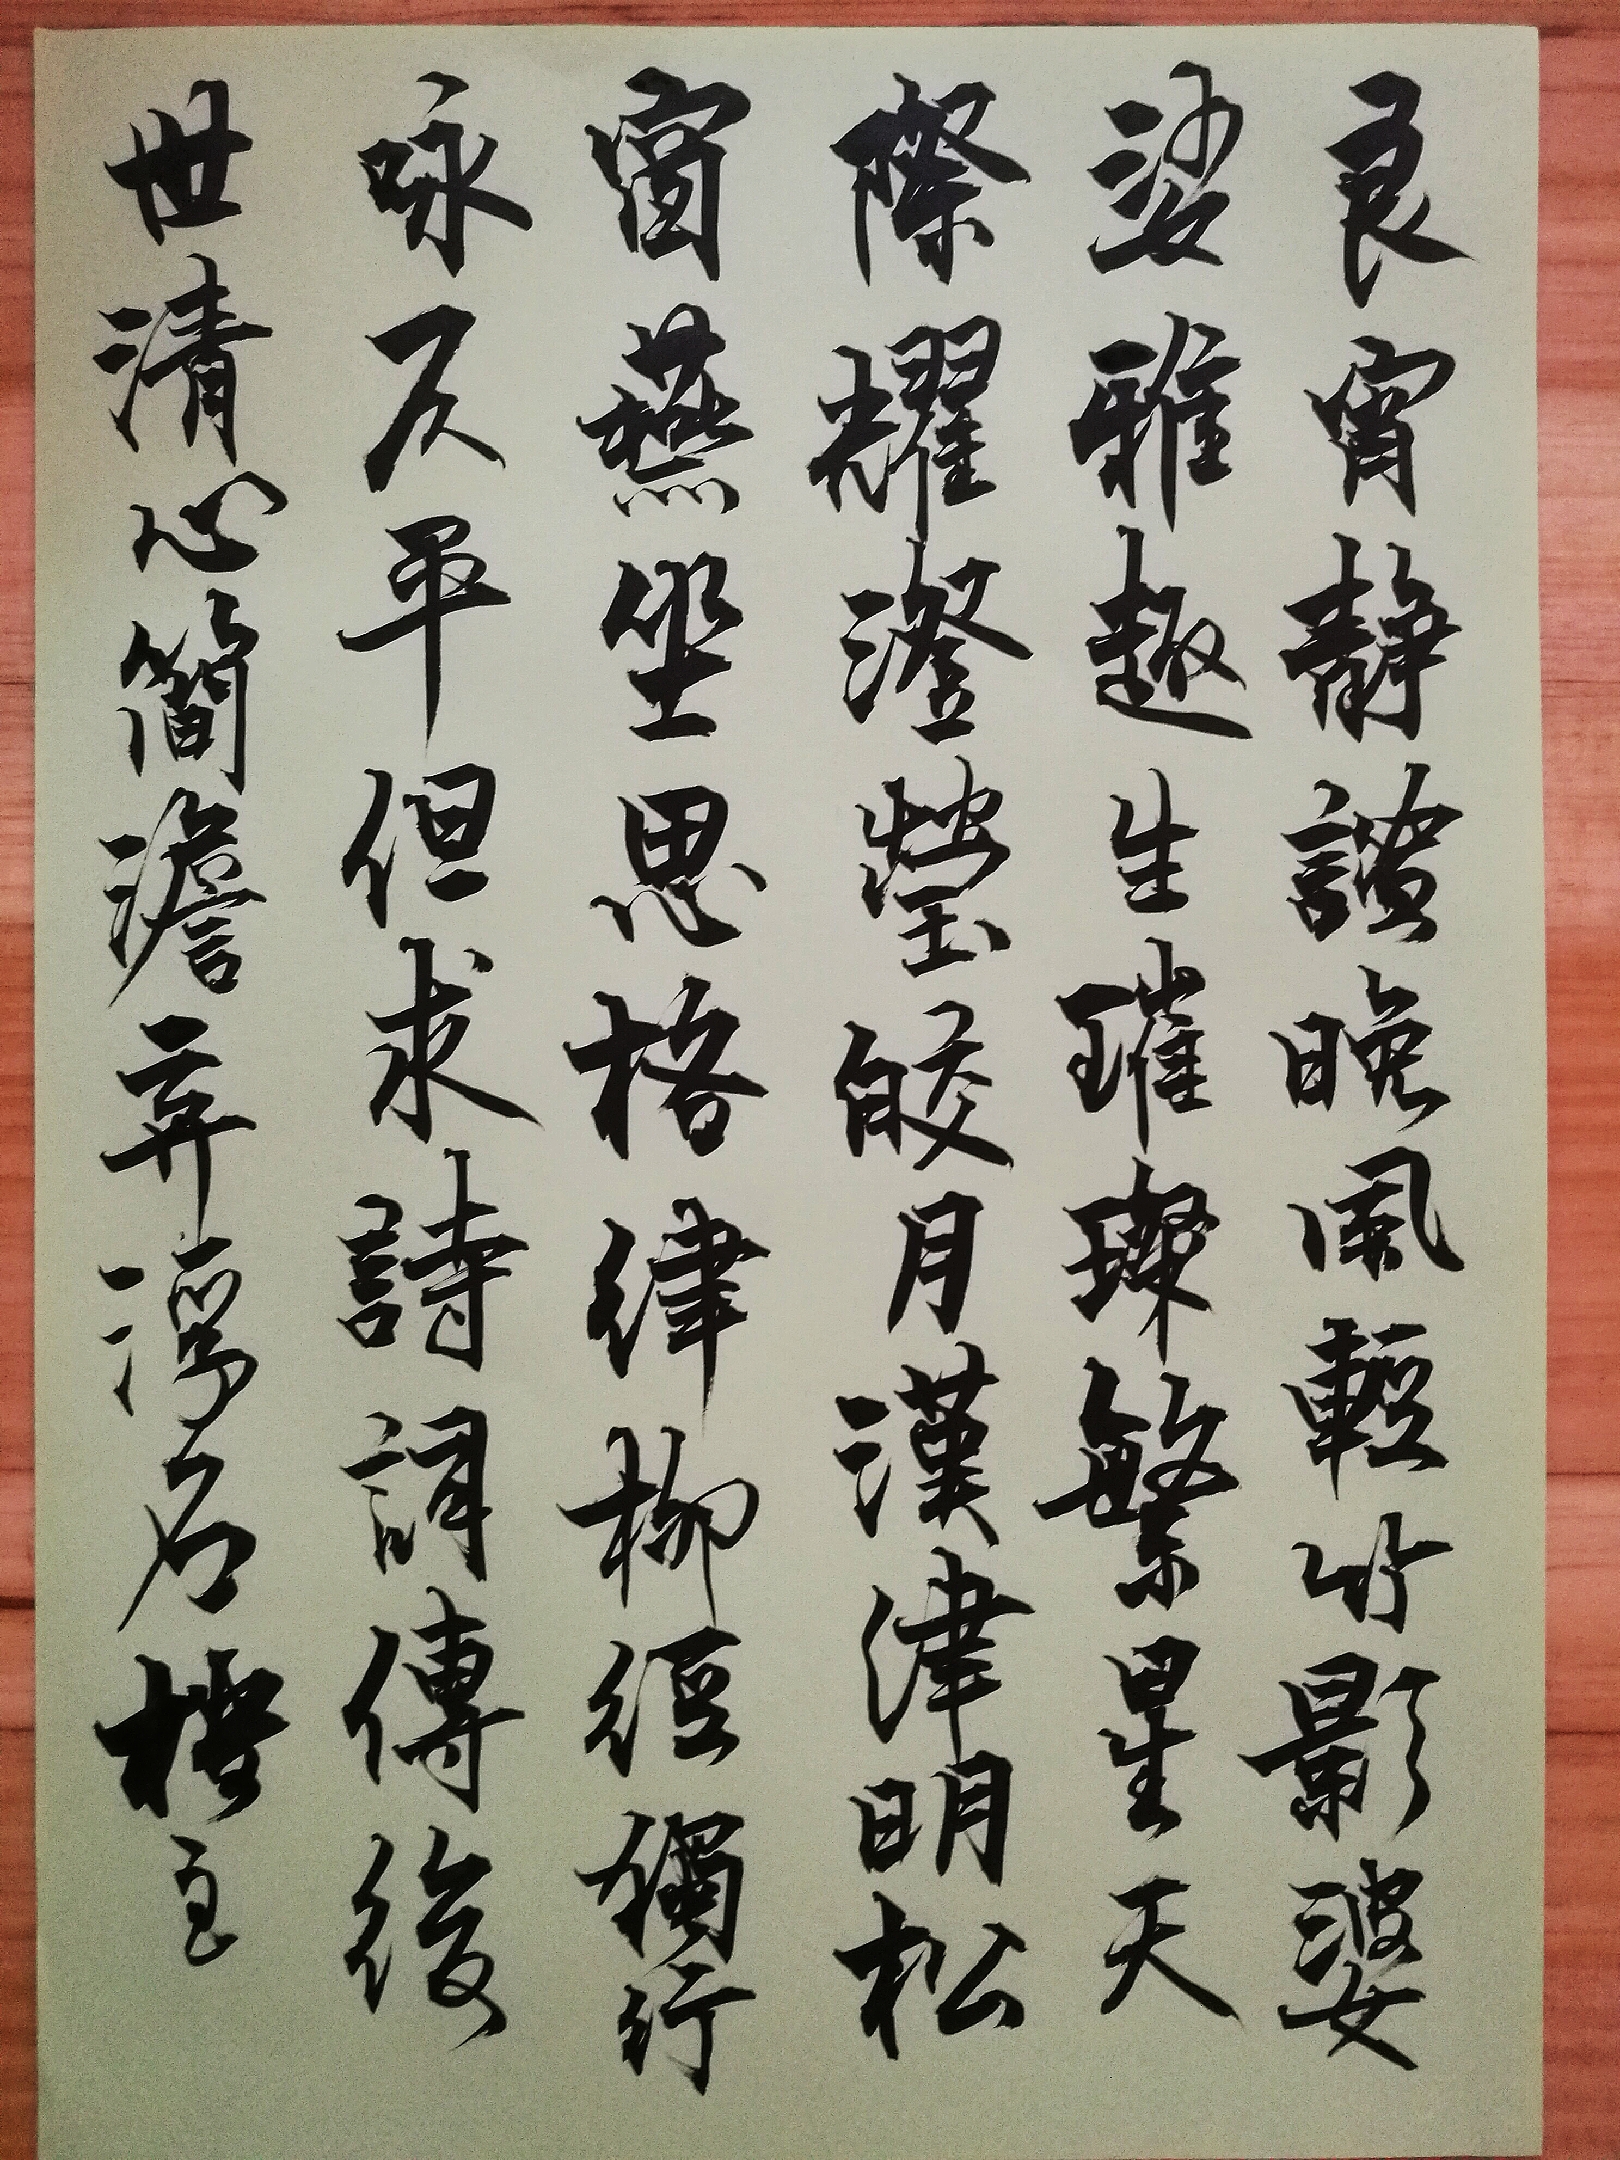 良宵靜謐晚風輕竹影婆
娑雅趣生璀璨繁星天
際耀澄瑩皎月漢津明松
窗燕坐思格律柳徑獨行
咏仄平但求詩詞傳後
世清心簡澹弃浮名